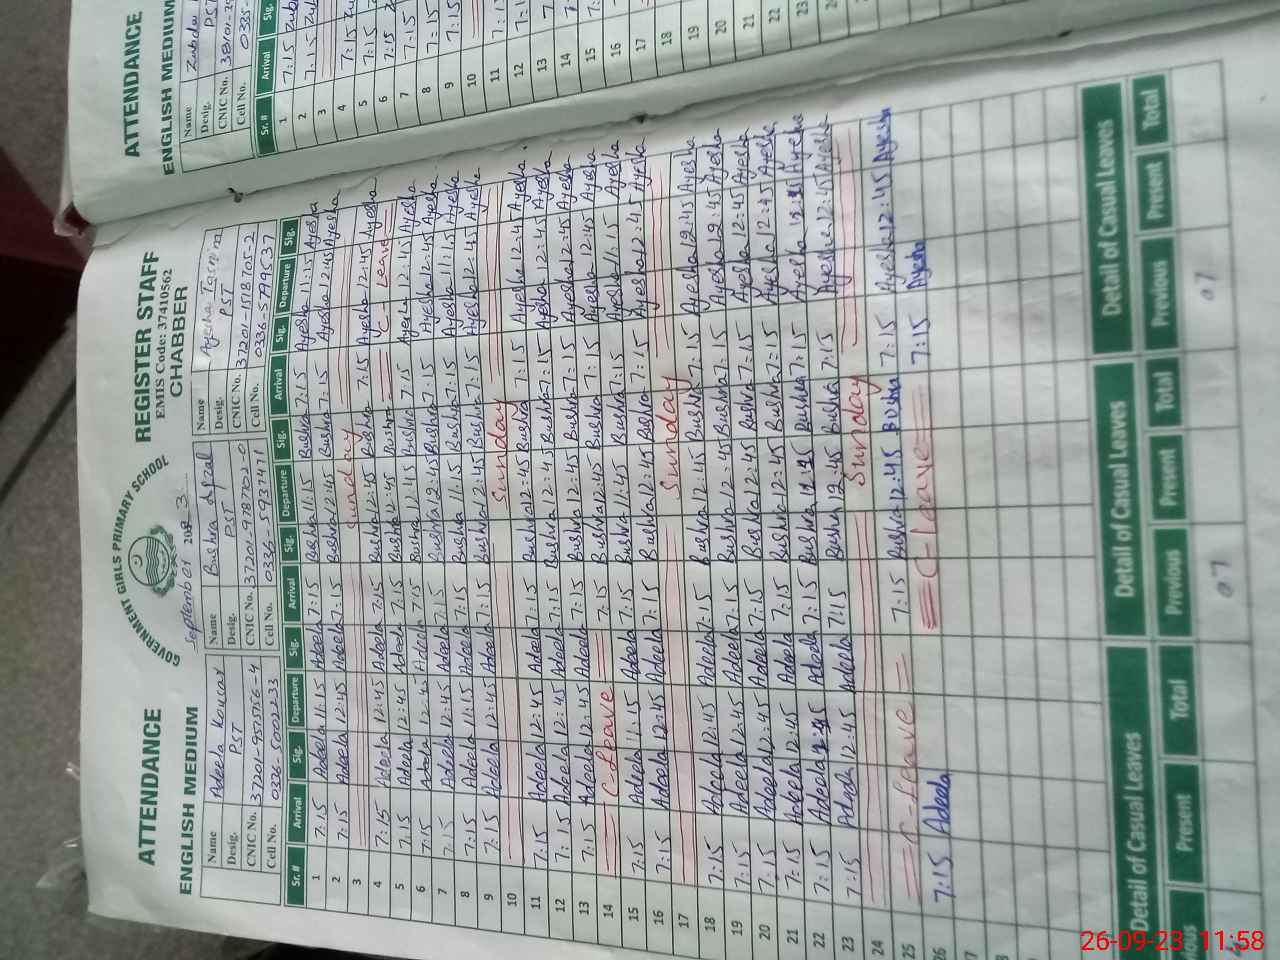 ATTENDANCE
REGISTER STAFF
ENGLISH MEDIUM
GOVERNMENT GIRLS PRIMARY SCHOOL
EMIS Code: 37410562
CHABBER
Name Adeela Kousar Name Bushra Afzal Name Ayesha Tasnim
Desig. PST Desig. PST Desig. PST
CNIC No. CNIC No. CNIC No.
Cell No. Cell No. Cell No.
Sr. # Arrival Sig. Departure Sig. Arrival Sig. Departure Sig. Arrival Sig. Departure Sig.
1 7:15 Adeela 11:15 Adeela 7:15 Bushra 11:15 Bushra 7:15 Ayesha 11:15 Ayesha
2 7:15 Adeela 12:45 Adeela 7:15 Bushra 12:45 Bushra 7:15 Ayesha 12:45 Ayesha
3 Sunday
4 7:15 Adeela 12:45 Adeela 7:15 Bushra 12:45 Bushra 7:15 Ayesha 12:45 Ayesha
5 7:15 Adeela 12:45 Adeela 7:15 Bushra 12:45 Bushra C-Leave
6 7:15 Adeela 12:45 Adeela 7:15 Bushra 12:45 Bushra 7:15 Ayesha 12:45 Ayesha
7 7:15 Adeela 12:45 Adeela 7:15 Bushra 12:45 Bushra 7:15 Ayesha 12:45 Ayesha
8 7:15 Adeela 11:15 Adeela 7:15 Bushra 11:15 Bushra 7:15 Ayesha 11:15 Ayesha
9 7:15 Adeela 12:45 Adeela 7:15 Bushra 12:45 Bushra 7:15 Ayesha 12:45 Ayesha
10 Sunday
11 7:15 Adeela 12:45 Adeela 7:15 Bushra 12:45 Bushra 7:15 Ayesha 12:45 Ayesha
12 7:15 Adeela 12:45 Adeela 7:15 Bushra 12:45 Bushra 7:15 Ayesha 12:45 Ayesha
13 7:15 Adeela 12:45 Adeela 7:15 Bushra 12:45 Bushra 7:15 Ayesha 12:45 Ayesha
14 C-Leave 7:15 Bushra 12:45 Bushra 7:15 Ayesha 12:45 Ayesha
15 7:15 Adeela 11:15 Adeela 7:15 Bushra 11:45 Bushra 7:15 Ayesha 11:15 Ayesha
16 7:15 Adeela 12:45 Adeela 7:15 Bushra 12:45 Bushra 7:15 Ayesha 12:45 Ayesha
17 Sunday
18 7:15 Adeela 12:45 Adeela 7:15 Bushra 12:45 Bushra 7:15 Ayesha 12:45 Ayesha
19 7:15 Adeela 12:45 Adeela 7:15 Bushra 12:45 Bushra 7:15 Ayesha 12:45 Ayesha
20 7:15 Adeela 12:45 Adeela 7:15 Bushra 12:45 Bushra 7:15 Ayesha 12:45 Ayesha
21 7:15 Adeela 12:45 Adeela 7:15 Bushra 12:45 Bushra 7:15 Ayesha 12:45 Ayesha
22 7:15 Adeela 12:45 Adeela 7:15 Bushra 12:45 Bushra 7:15 Ayesha 12:45 Ayesha
23 7:15 Adeela 12:45 Adeela 7:15 Bushra 12:45 Bushra 7:15 Ayesha 12:45 Ayesha
24 Sunday
25 C-Leave 7:15 Bushra 12:45 Bushra 7:15 Ayesha 12:45 Ayesha
26 7:15 Adeela C-Leave 7:15 Ayesha
27
28
Detail of Casual Leaves Detail of Casual Leaves Detail of Casual Leaves
Present Total Previous Present Total Previous Present Total
07 07
ATTENDANCE
ENGLISH MEDIUM
Name
Desig. PST
CNIC No.
Cell No.
Sr. # Arrival Sig.
1 7:15
2 7:15
3
4 7:15
5 7:15
6 7:15
7 7:15
8 7:15
9 7:15
10
11
12
13
14
15
16
17
18
19
20
21
22
23
26-09-23 11:58